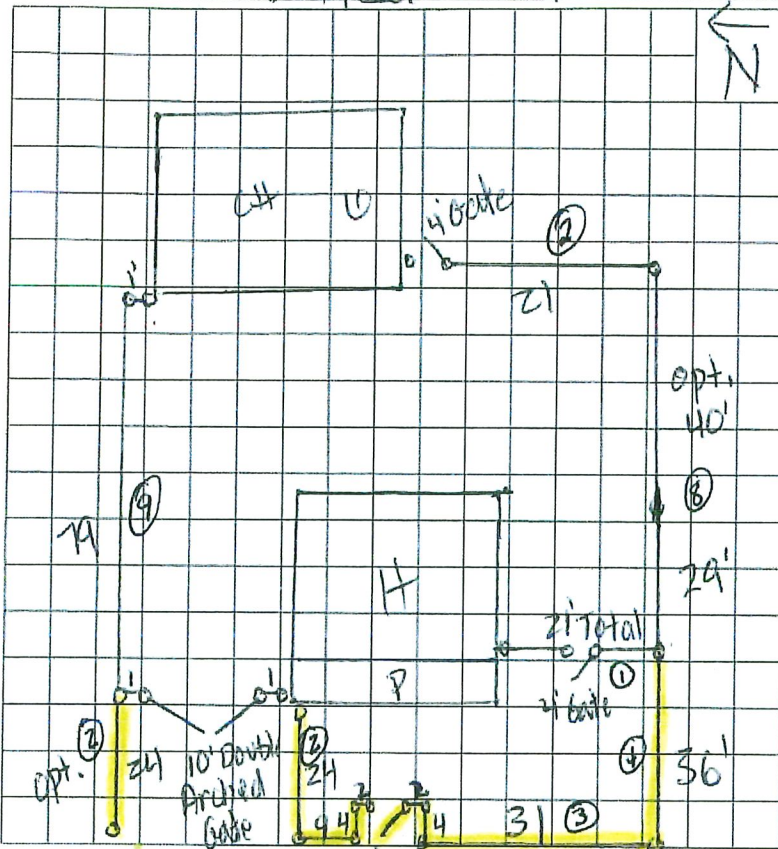 N
CH
4' Gate
②
1'
21
opt.
40'
⑨
79
⑧
29'
H
21' Total
①
4' Gate
P
1
1
opt. ②
24
10' Double
Arched
Gate
②
24
④
36'
2
2
9
4
4
31 ③